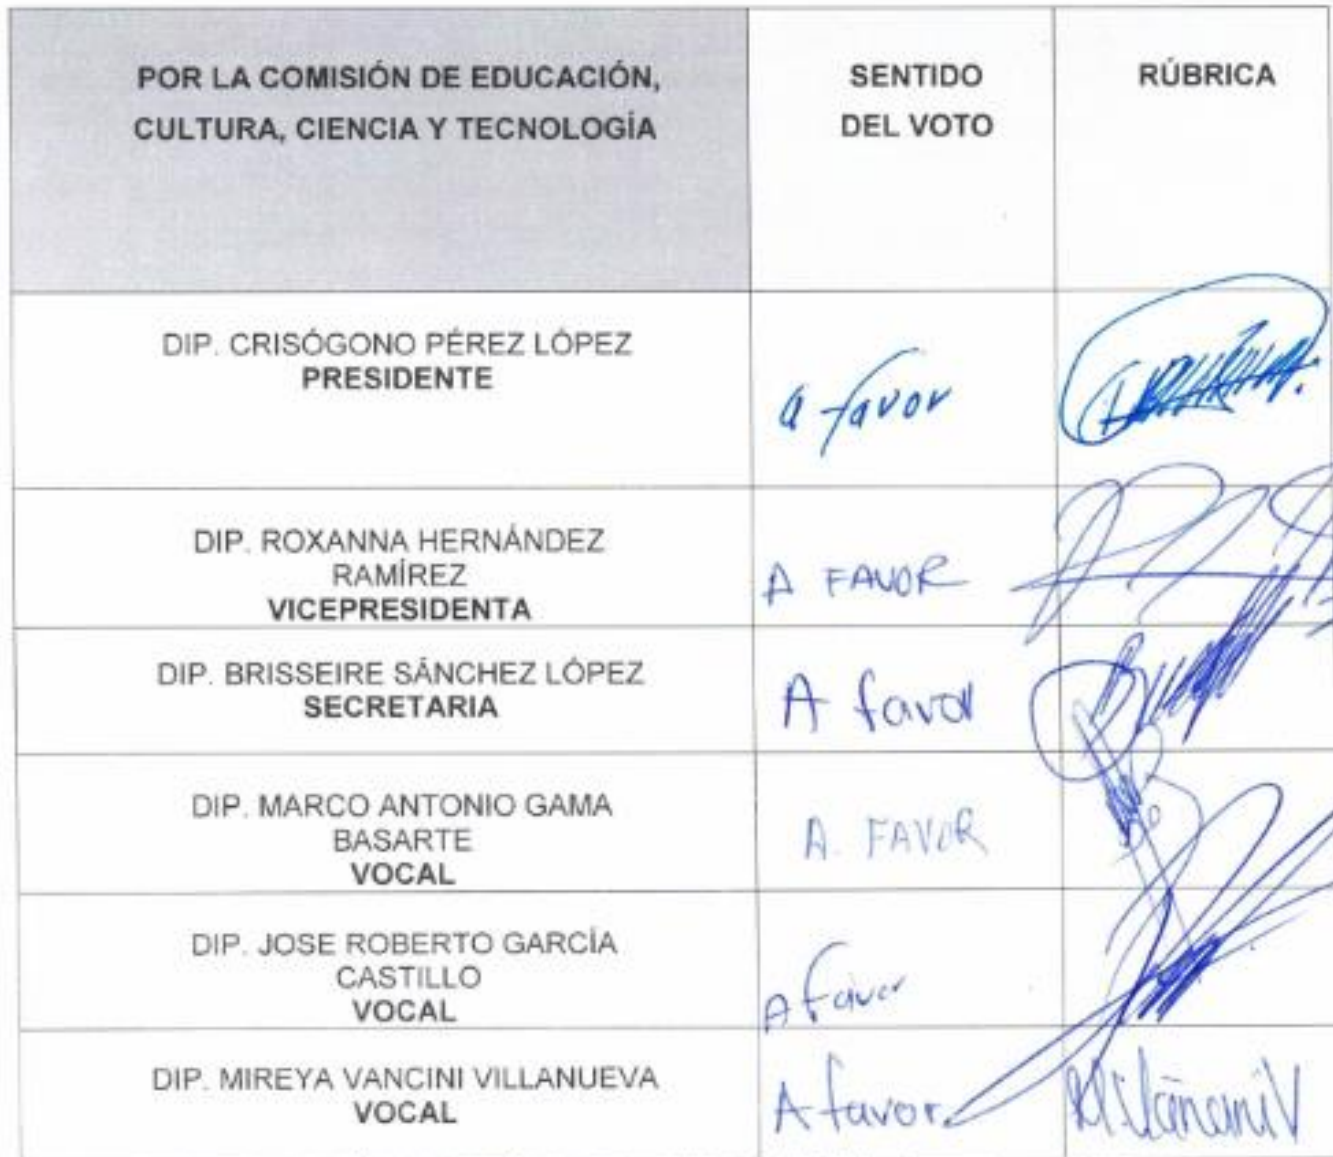 POR LA COMISIÓN DE EDUCACIÓN,
CULTURA, CIENCIA Y TECNOLOGÍA
SENTIDO
DEL VOTO
RÚBRICA
DIP. CRISÓGONO PÉREZ LÓPEZ
PRESIDENTE
a favor
DIP. ROXANNA HERNÁNDEZ
RAMÍREZ
VICEPRESIDENTA
A FAVOR
DIP. BRISSEIRE SÁNCHEZ LÓPEZ
SECRETARIA
A favor
DIP. MARCO ANTONIO GAMA
BASARTE
VOCAL
A. FAVOR
DIP. JOSE ROBERTO GARCÍA
CASTILLO
VOCAL
A favor
DIP. MIREYA VANCINI VILLANUEVA
VOCAL
A favor.